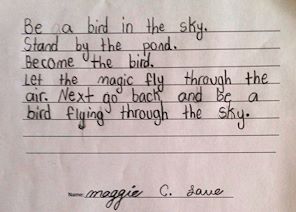 Be a bird in the sky.
Stand by the pond.
Become the bird.
Let the magic fly through the
air. Next go back and be a
bird flying through the sky.
Name: maggie C. Save